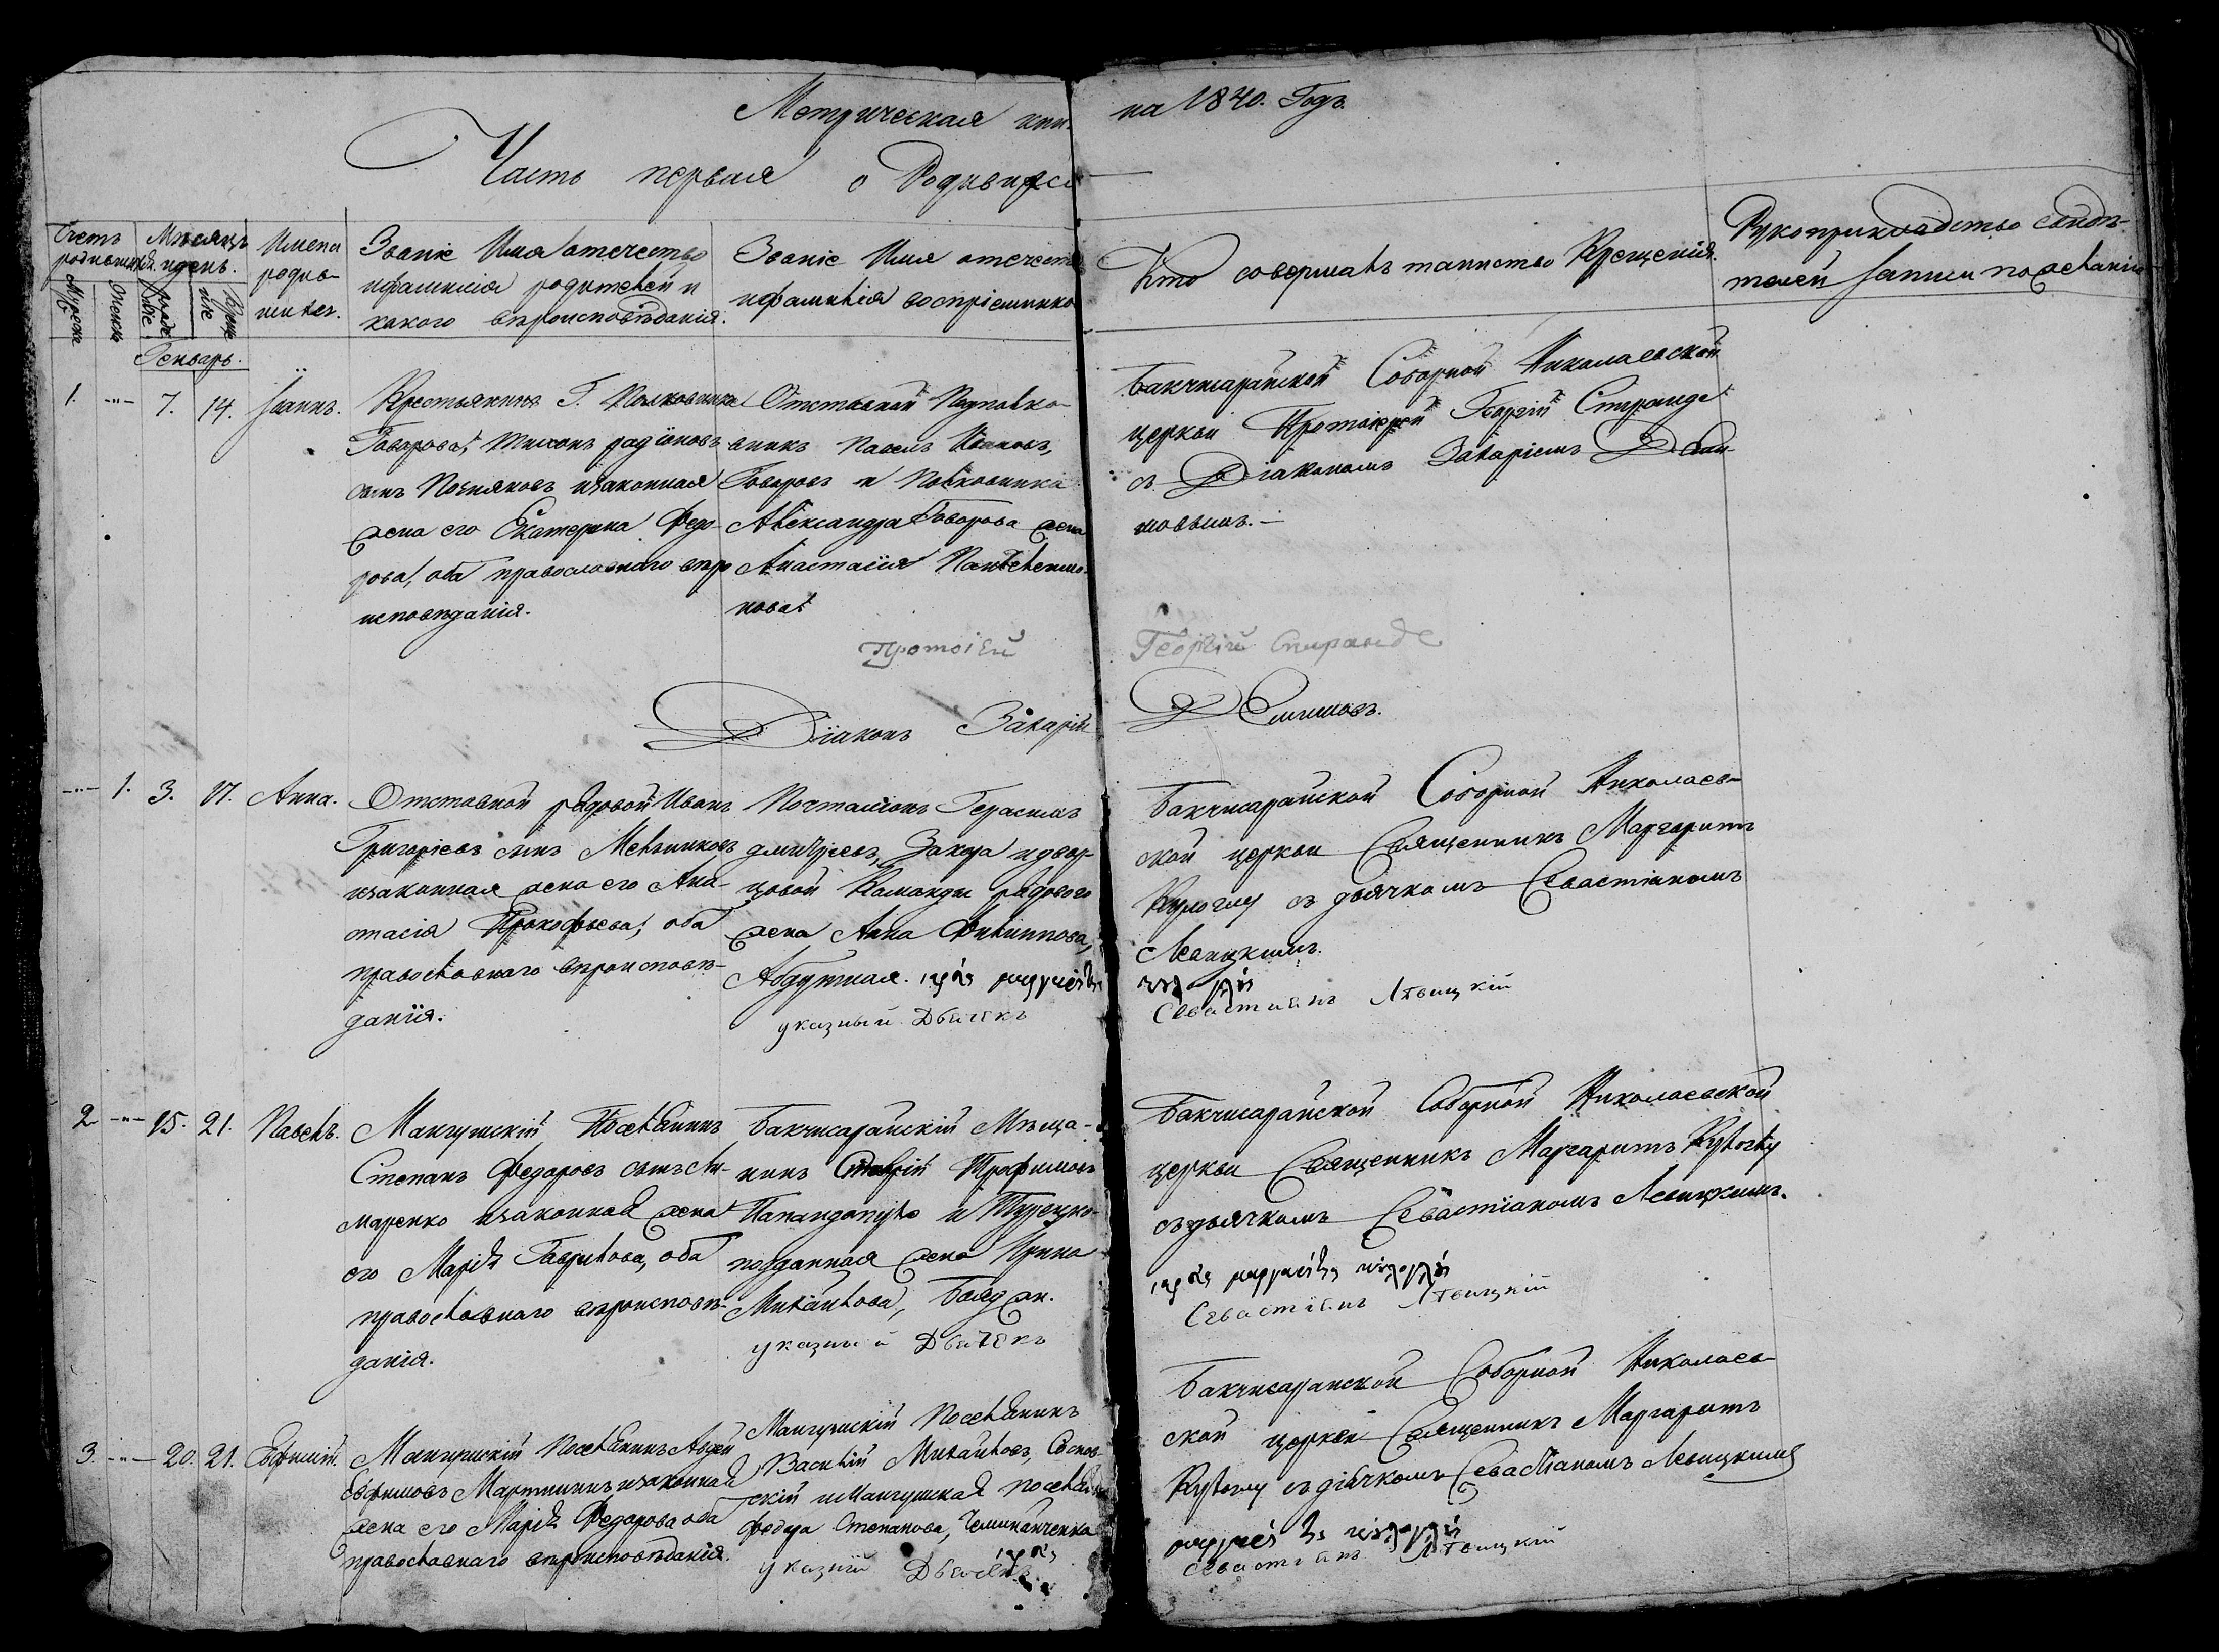 Метрическая кни- на 1840. Годъ.
Часть первая о Родивихся
Счетъ родившихся.
Мужеска
Женска
Мѣсяцъ и день.
рожде ніе
Креще ніе
Имена родив- шихся.
Званіе Имя отечество
и фамилія родителей и
какого вѣроисповѣданія.
Званіе Имя отечество
и фамилія воспріемнико
Кто совершалъ таинство Крещенія.
Рукоприкладство свидѣ-
телей записи по желанію
Генварь.
1. -"- 7. 14. Іоаннъ.
Крестьянинъ Г. Полковника
Говорова, Тихонъ радіоновъ
сынъ Позняковъ и законная
жена его Екатерина Федо-
рова, оба православнаго вѣро
исповѣданія.
Отставной Подполко-
вникъ Павелъ Ивановъ,
Говоровъ и Полковника
Александра Говорова жена
Анастасія Пантелеимо-
нова.
Бакчисарайской Соборной Николаевской
церкви Протоіерей Георгій Спиранде
съ Діакономъ Захаріемъ
мовымъ.-
Протоіей Георгій Спиранде
Діаконъ Захарій
-"- 1. 3. 17. Анна.
Отставной рядовой Иванъ
Григоріевъ сынъ Мельниковъ
и законная жена его Ана-
стасія Прокофьева, оба
православнаго вѣроисповѣ-
данія.
Почталіонъ Герасимъ
цовой Команды рядового
жена Анна Филиппова,
Бакчисарайской Соборной Николаев-
ской церкви Священникъ Маргаритъ
Кулоглу съ дьячкомъ Севастіаномъ
Левицкимъ.
указный Дьячекъ Севастианъ Лѣвицкій
2 -"- 15. 21. Павелъ.
Мангушскій Поселянинъ
Степанъ Федоровъ сынъ Ли-
маренко и законная жена
его Марія Гаврилова, оба
православнаго вѣроисповѣ-
данія.
Бакчисарайскій Мѣща-
нинъ Трофимовъ
Папандопуло и Турецко-
подданная жена Ирина
Михайлова,
Бакчисарайской Соборной Николаевской
церкви Священникъ Маргаритъ Кулоглу
съ дьячкомъ Севастіаномъ Левицкимъ.
указный Дьячекъ Севастіанъ Лѣвицкій
3. -"- 20. 21. Евфимій.
Мангушскій Поселянинъ Авдей
Евфимовъ Мартининъ и законная
жена его Марія Федорова оба
православнаго вѣроисповѣданія.
Мангушскій Поселянинъ
Василій Михайловъ,
скій и Мангушская
Федора Степанова,
Бакчисарайской Соборной Николаев-
ской церкви Священникъ Маргаритъ
Кулоглу съ дьячкомъ Севастіаномъ Левицкимъ
указній Дьячекъ Севастіанъ Лѣвицкій